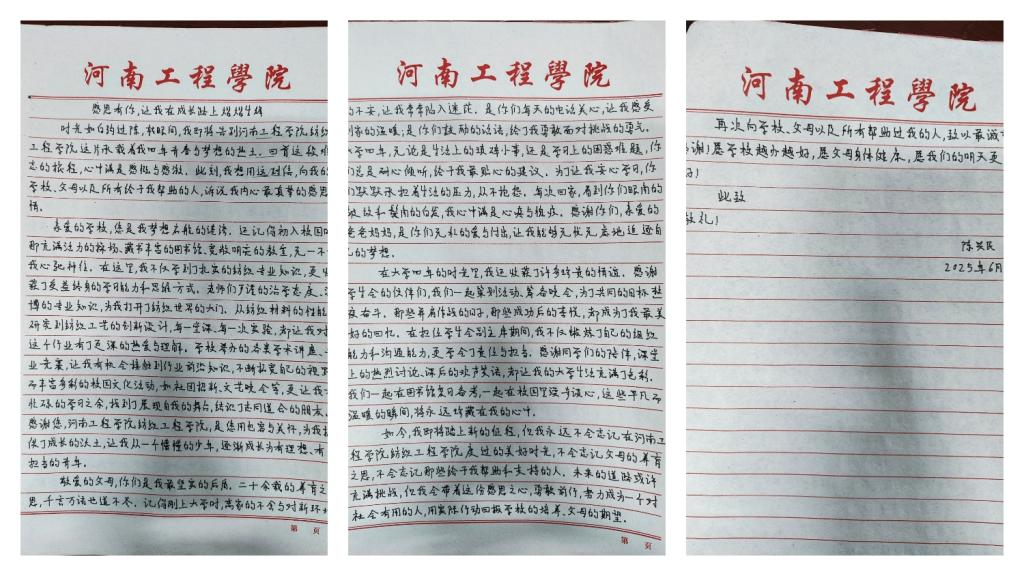 河南工程學院
感恩有你,让我在成长路上熠熠生辉
时光如白驹过隙,转眼间,我即将告别河南工程学院纺织
工程学院这片承载着我四年青春与梦想的热土。回首这段难
忘的旅程,心中满是感慨与感激。此刻,我想用这封信,向我的
学校、父母以及所有给予我帮助的人,诉说我内心最真挚的感恩
情。
亲爱的学校,您是我梦想启航的港湾。还记得初入校园时
那充满活力的操场、藏书丰富的图书馆、宽敞明亮的教室,无一不
我心驰神往。在这里,我不仅学到了扎实的纺织专业知识,更
获了受益终身的学习能力和思维方式。老师们严谨的治学态度、
博的专业知识,为我打开了纺织世界的大门。从纺织材料的性能
研究到纺织工艺的创新设计,每一堂课、每一次实验,都让我对
这个行业有了更深的热爱与理解。学校举办的各类学术讲座、
业竞赛,让我有机会接触到行业前沿知识,不断拓宽自己的视野
而丰富多彩的校园文化活动,如社团招新、文艺晚会等,更让我
忙碌的学习之余,找到了展现自我的舞台,结识了志同道合的朋友。
感谢您,河南工程学院纺织工程学院,是您用包容与关怀,为我提
供了成长的沃土,让我从一个懵懂的少年,逐渐成长为有理想、有
担当的青年。
敬爱的父母,你们是我最坚实的后盾。二十余载的养育之
恩,千言万语也道不尽。记得刚上大学时,离家的不舍与对新环境
第 页
河南工程學院
的不安,让我常常陷入迷茫。是你们每天的电话关心,让我感受
到家的温暖;是你们鼓励的话语,给了我勇敢面对挑战的勇气。
大学四年,无论是生活上的琐碎小事,还是学习上的困惑难题,你
们总是耐心倾听,给予我最贴心的建议。为了让我安心学习,你
们默默承担着生活的压力,从不抱怨。每次回家,看到你们眼角的
皱纹和鬓角的白发,我心中满是心疼与愧疚。感谢你们,亲爱的
爸爸妈妈,是你们无私的爱与付出,让我能够无忧无虑地追逐自
己的梦想。
在大学四年的时光里,我还收获了许多珍贵的情谊。感谢
学生会的伙伴们,我们一起策划活动、筹备晚会,为了共同的目标
奋斗。那些并肩作战的日子,那些成功后的喜悦,都成为我最美
好的回忆。在担任学生会副主席期间,我不仅锻炼了自己的组织
能力和沟通能力,更学会了责任与担当。感谢同学们的陪伴,课堂
上的热烈讨论、课后的欢声笑语,都让我的大学生活充满了色彩。
我们一起在图书馆复习备考,一起在校园里谈心,这些平凡而
温暖的瞬间,将永远珍藏在我的心中。
如今,我即将踏上新的征程,但我永远不会忘记在河南工
程学院纺织工程学院度过的美好时光,不会忘记父母的养育
之恩,不会忘记那些给予我帮助和支持的人。未来的道路或许
充满挑战,但我会带着这份感恩之心,勇敢前行,努力成为一个对
社会有用的人,用实际行动回报学校的培养、父母的期望。
第 页
河南工程學院
再次向学校、父母以及所有帮助过我的人,致以最诚
谢!愿学校越办越好,愿父母身体健康,愿我们的明天更
好!
此致
敬礼!
陈
2025年6月